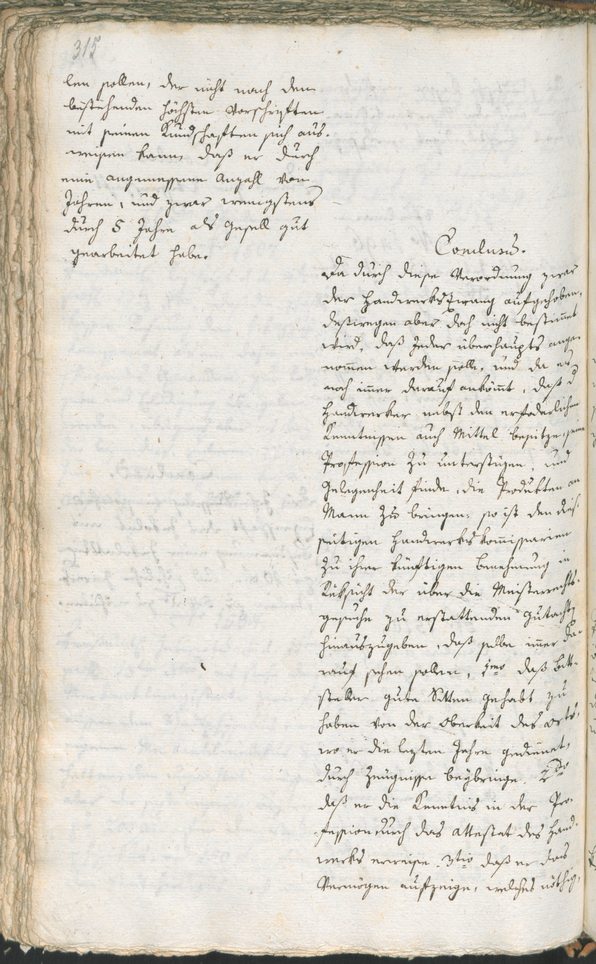 315
len sollen, der nicht nach den
bestehenden höchsten Vorschriften
mit seinen Kundschaften sich aus-
weisen kann, daß er durch
eine angemessene Anzahl von
Jahren, und zwar wenigstens
durch 5 Jahre als Gesell gut
gearbeitet habe.
Conclusum.
Da durch diese Verordnung zwar
der Handwerkszwang aufgehoben,
deßwegen aber doch nicht bestimmt
wird, daß Jeder überhaupts ange-
nommen werden solle, und da es
noch immer darauf ankömmt, daß d
Handwerker nebst den erforderlichen
Kenntnissen auch Mittel besitze, seine
Profession zu unterstüzen, und
Gelegenheit finde, die Produkten an
Mann zu bringen; so ist den dies-
seitigen Handwerkskommissarien
zu ihrer künftigen Benehmung in
Rüksicht der über die Meisterrechts-
gesuche zu erstattenden Gutachten
hinauszugeben, daß selbe immer da-
rauf sehen sollen, 1mo daß Bitt-
steller gute Sitten gehabt zu
haben von der Obrikeit des Orts,
wo er die lezten Jahre gedienet,
durch Zeugnisse beybringe. 2do
daß er die Kenntnis in der Pro-
fession durch das Attestat des Hand-
werks erweise. 3tio daß er das
Vermögen aufzeige, welches nöthig,